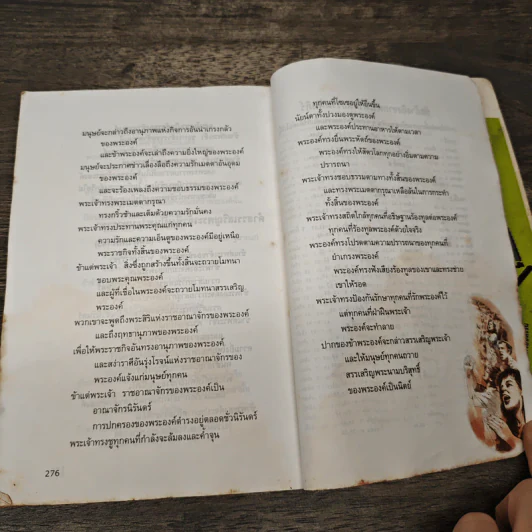 มนุษย์จะกล่าวถึงอานุภาพแห่งกิจการอันน่าเกรงกลัว
ของพระองค์
และข้าพระองค์จะเล่าถึงความยิ่งใหญ่ของพระองค์
มนุษย์จะประกาศข่าวเลื่องลือถึงความรักเมตตาอันอุดม
ของพระองค์
และจะร้องเพลงถึงความชอบธรรมของพระองค์
พระเจ้าทรงพระเมตตากรุณา
ทรงกริ้วช้าและเต็มด้วยความรักมั่นคง
พระเจ้าทรงประทานพระคุณแก่ทุกคน
ความรักและความเอ็นดูของพระองค์มีอยู่เหนือ
พระราชกิจทั้งสิ้นของพระองค์
ข้าแต่พระเจ้า สิ่งซึ่งถูกสร้างขึ้นทั้งสิ้นจะถวายโมทนา
ขอบพระคุณพระองค์
และผู้ที่เชื่อในพระองค์จะถวายโมทนาสรรเสริญ
พระองค์
พวกเขาจะพูดถึงพระสิริแห่งราชอาณาจักรของพระองค์
และถึงฤทธานุภาพของพระองค์
เพื่อให้พระราชกิจอันทรงอานุภาพของพระองค์
และสง่าราศีอันรุ่งโรจน์แห่งราชอาณาจักรของ
พระองค์แจ้งแก่มนุษย์ทุกคน
ข้าแต่พระเจ้า ราชอาณาจักรของพระองค์เป็น
อาณาจักรนิรันดร์
การปกครองของพระองค์ดำรงอยู่ตลอดชั่วนิรันดร์
พระเจ้าทรงชูทุกคนที่กำลังจะล้มลงและค้ำจุน
276
ทุกคนที่โซเซอยู่ให้ยืนขึ้น
นัยน์ตาทั้งปวงมองดูพระองค์
และพระองค์ประทานอาหารให้ตามเวลา
พระองค์ทรงยื่นพระหัตถ์ของพระองค์
พระองค์ทรงให้สัตว์โลกทุกอย่างอิ่มตามความ
ปรารถนา
พระเจ้าทรงชอบธรรมตามทางทั้งสิ้นของพระองค์
และทรงพระเมตตากรุณาเหลือล้นในการกระทำ
ทั้งสิ้นของพระองค์
พระเจ้าทรงสถิตใกล้ทุกคนที่อธิษฐานร้องทูลต่อพระองค์
ทุกคนที่ร้องทูลพระองค์ด้วยใจจริง
พระองค์ทรงโปรดตามความปรารถนาของทุกคนที่
ยำเกรงพระองค์
พระองค์ทรงฟังเสียงร้องทูลของเขาและทรงช่วย
เขาให้รอด
พระเจ้าทรงป้องกันรักษาทุกคนที่รักพระองค์ไว้
แต่ทุกคนที่ฝ่าฝืนพระเจ้า
พระองค์จะทำลาย
ปากของข้าพระองค์จะกล่าวสรรเสริญพระเจ้า
และให้มนุษย์ทุกคนถวาย
สรรเสริญพระนามบริสุทธิ์
ของพระองค์เป็นนิตย์